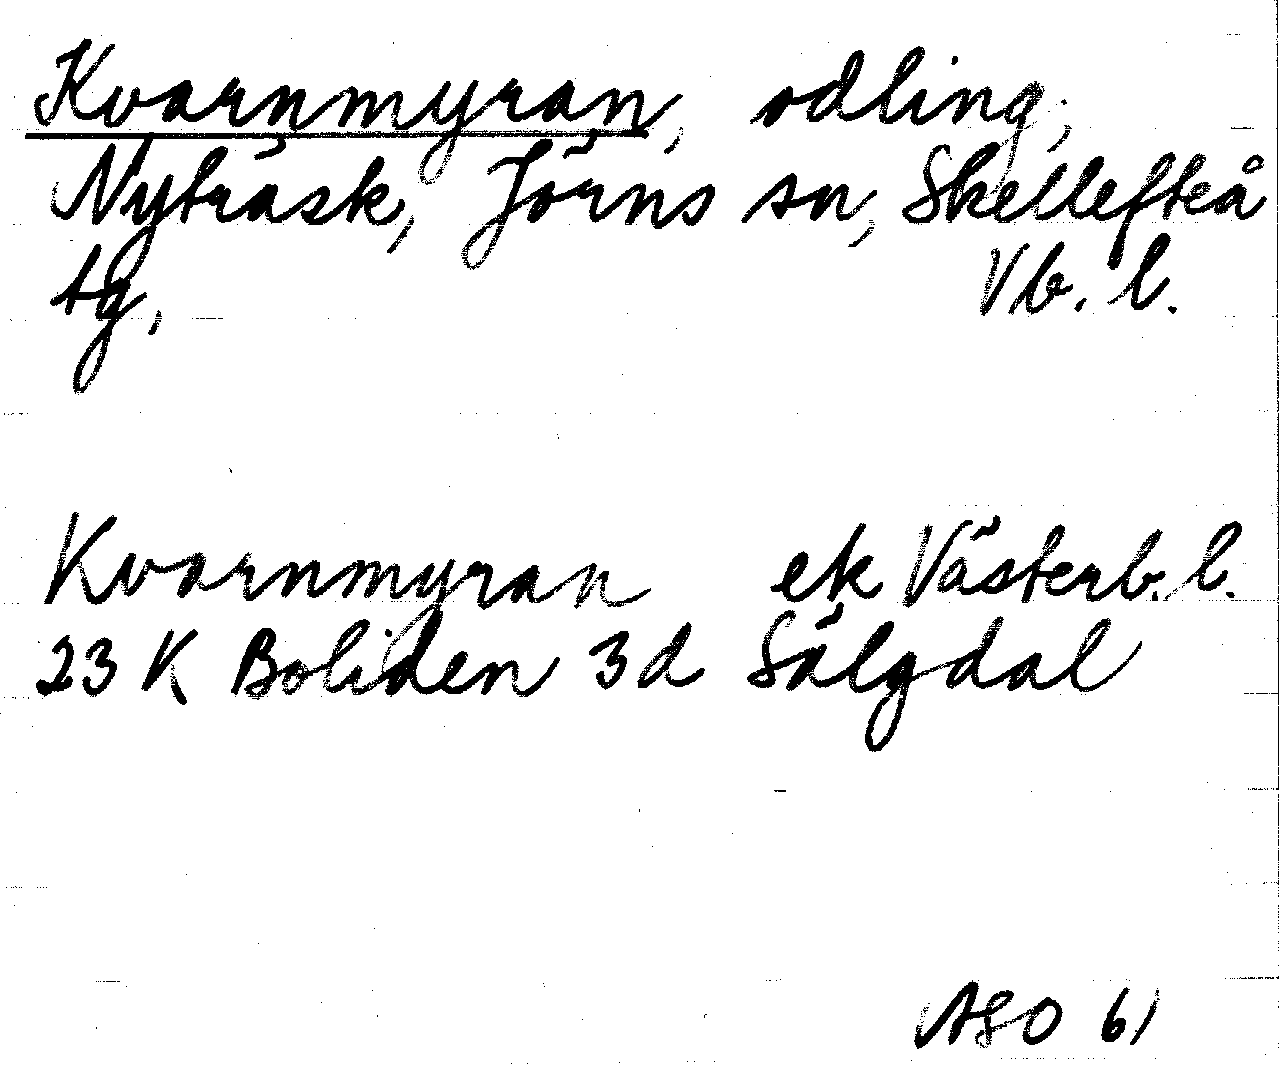 Kvarnmyran, odling,
Nyträsk, Jörns sn, Skellefteå
tg, Vb. l.
Kvarnmyran ek Västerb. l.
23 K Boliden 3d Sälgdal
ASO 61